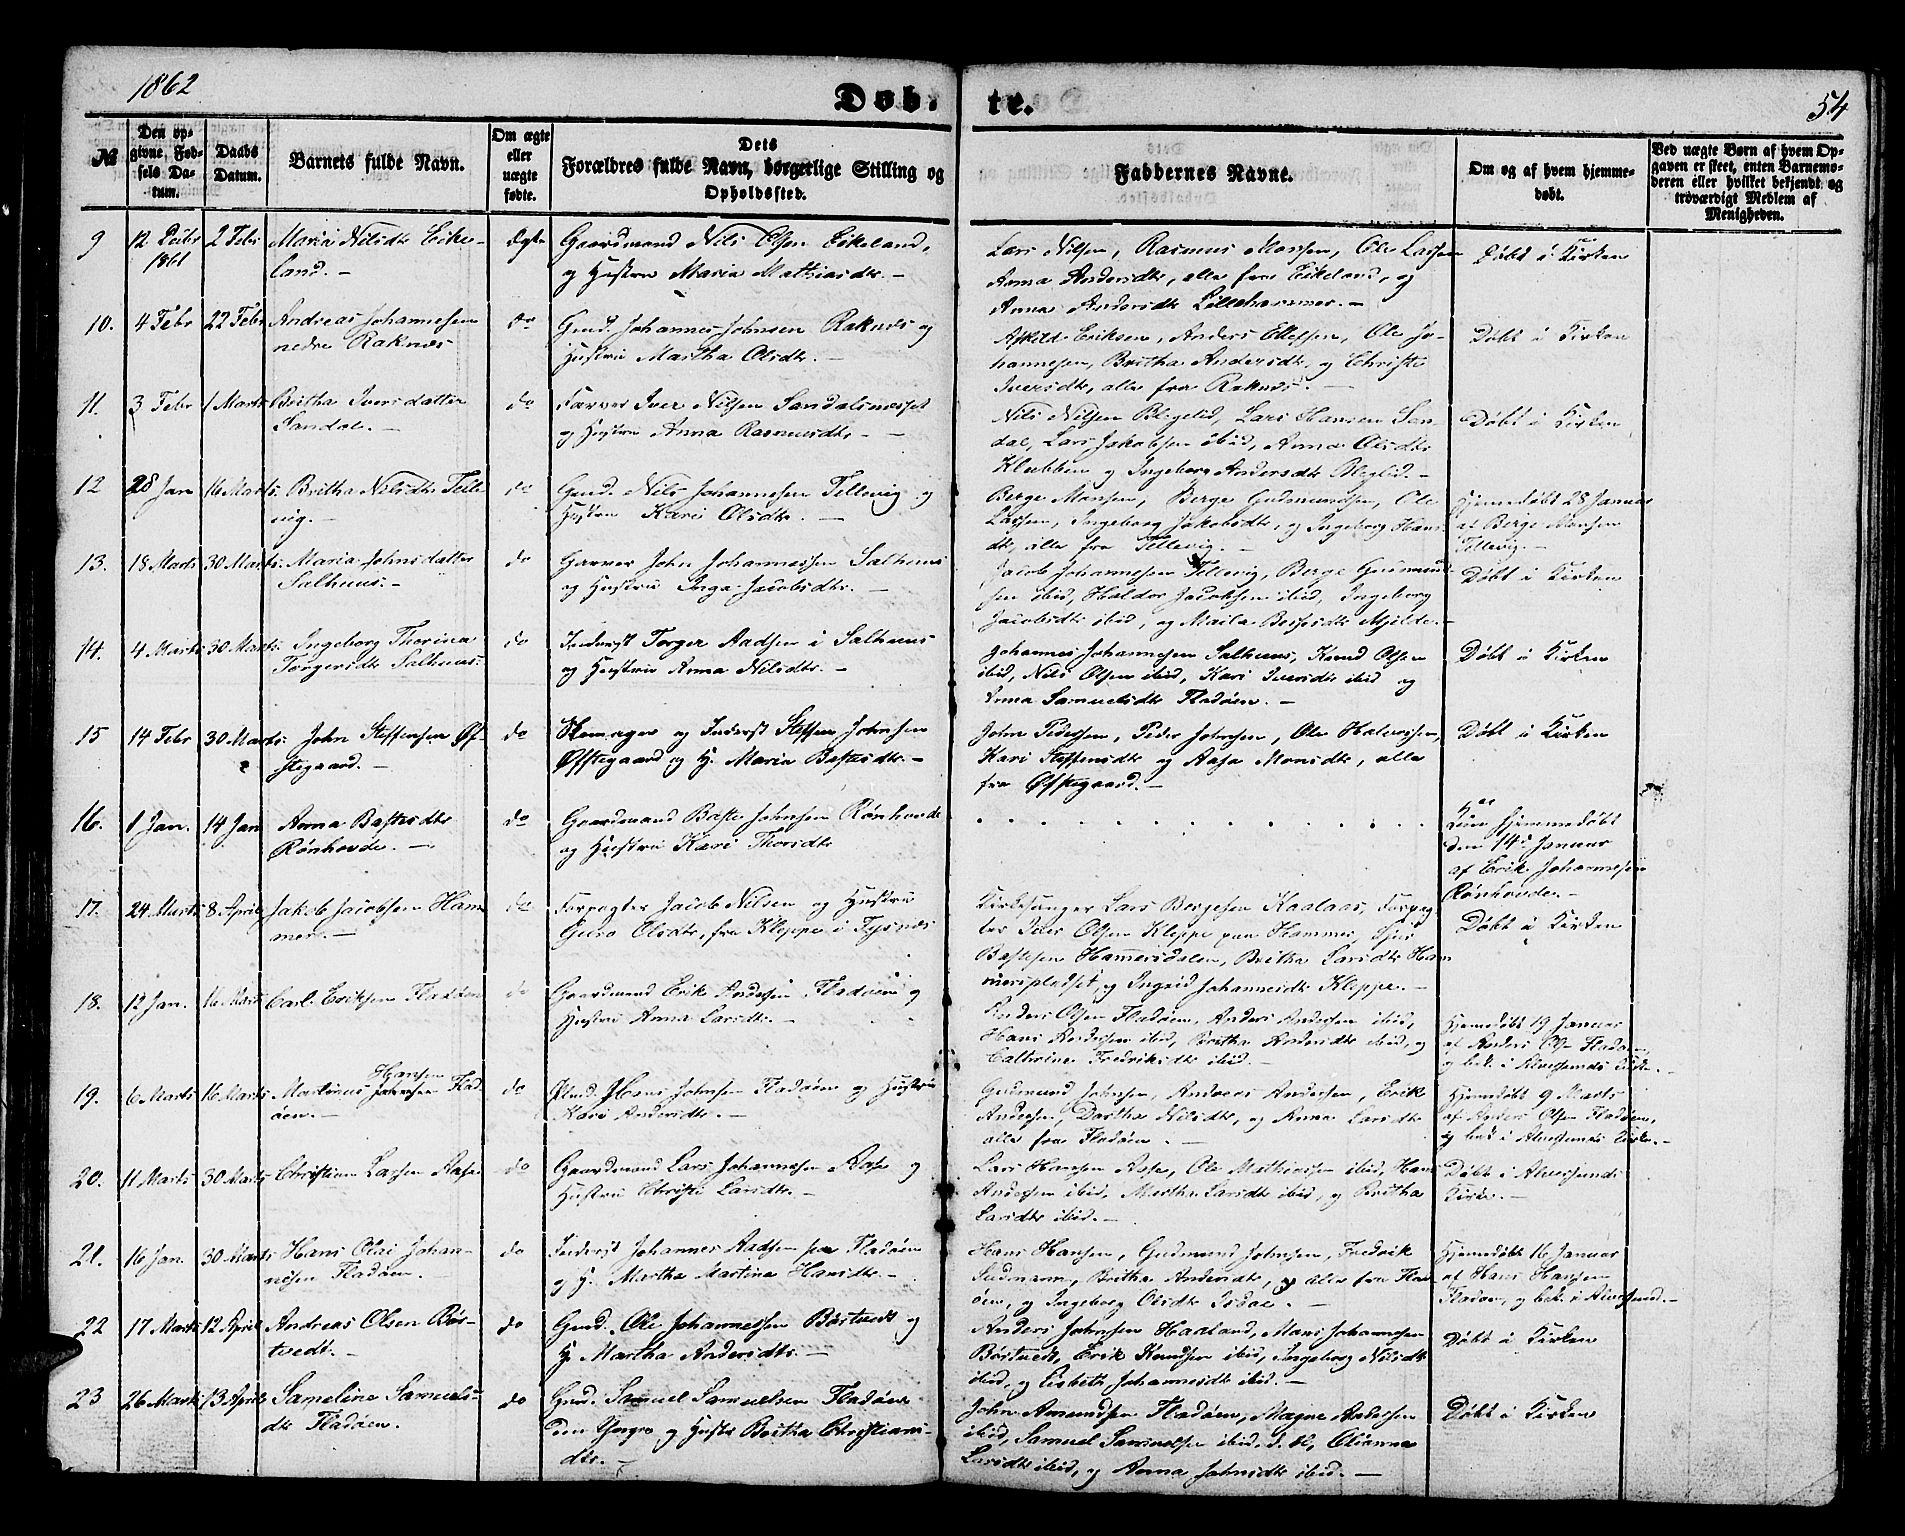 1862
Døb. te.
54
№
Den op-
givne Fød-
sels Da-
tum.
Daabs
Datum.
Barnets fulde Navn.
Om ægte
eller
uægte
fødte.
Dets
Forældres fulde Navn, borgerlige Stilling og
Opholdssted.
Faddernes Navne.
Om og af hvem hjemme-
døbt.
Ved uægte Børn af hvem Op-
gaven er skeet, enten Barnemo-
deren eller hvilket bekjendt og
troværdigt Medlem af
Menigheden.
9 12 Decbr 2 Febr Maria Nilsdtr Eike-
1861 land. -
ægte
Gaardmand Nils Olsen Eikeland,
og Hustru Maria Mathiasdtr. -
Lars Nilsen, Rasmus Monsen, Ole Larsen
Anna Andersdtr, alle fra Eikeland, og
Anna Andersdtr Lillehammer. -
Døbt i Kirken
10. 4 Febr 22 Febr Andreas Johannesen
nedre Raknes
do
Gmd. Johannes Johnsen Raknes og
Hustru Martha Olsdtr. -
Askild Eriksen, Anders Ellefsen, Ole Jo-
hannesen, Britha Andersdtr, og Christi
Iversdtr, alle fra Raknes. -
Døbt i Kirken
11. 3 Febr 1 Marts Britha Iversdatter
Sandal. -
do
Farver Iver Nilsen Sandalsnesset
og Hustru Anna Rasmusdtr. -
Nils Nilsen Blegelid, Lars Hansen San-
dal, Lars Jakobsen ibid, Anna Olsdtr
Klubben og Ingeborg Andersdtr Bleglid. -
Døbt i Kirken
12 28 Jan 16 Marts. Britha Nilsdtr Telle-
vig. -
do
Gmd. Nils Johannesen Tellevig og
Hustru Kari Olsdtr. -
Berge Monsen, Berge Gudmundsen, Ole
Larsen, Ingeborg Jakobsdtr, og Ingeborg Hans-
dtr, alle fra Tellevig. -
Hjemmedøbt 28 Januar
af Berge Monsen
Tellevig. -
13. 18 Marts 30 Marts. Maria Johnsdatter
Salhuus. -
do
Garver John Johannessen Salhuus
og Hustru Inga Jacobsdtr. -
Jacob Johannesen Tellevig, Berge Gudmund-
sen ibid, Haldor Jacobsen ibid, Ingeborg
Jacobsdtr ibid, og Mjelde. -
Døbt i Kirken
14. 4 Marts 30 Marts. Ingeborg Thorina
Torgersdtr Salhuus.
do
Inderst Torger Aadsen i Salhuus
og Hustru Anna Nilsdtr. -
Johannes Johannesen Salhuus, Knud Olsen
ibid, Nils Olsen ibid, Kari Iversdtr ibid og
Anna Samuelsdtr Fladøen. -
Døbt i Kirken
15 14 Febr 30 Marts. John Steffensen Øf-
stegaard. -
do
Skomager og Inderst Steffen Johnsen
Øfstegaard og H. Maria Bastesdtr. -
John Pedersen, Peder Johnsen, Ole Halvorsen,
Kari Steffensdtr og Aasa Monsdtr, alle
fra Øfstegaard. -
Døbt i Kirken
16. 1 Jan. 14 Jan Anna Bastesdtr
Rønhovde. -
do
Gaardmand Baste Johnsen Rønhovde
og Hustru Kari Thorsdtr
Kun hjemmedøbt
den 14de Januar
af Erik Johannesen
Rønhovde. -
17. 24 Marts 8 April Jakob Jacobsen Ham-
mer. -
do
Forpagter Jacob Nilsen og Hustru
Guro Olsdtr, fra Kleppe i Tysnes
Kirkesanger Lars Bergesen Kaalaas, Forpag-
ter Peder Olsen Kleppe paa Hammer, Sjur
Bastesen Hamersdalen, Britha Larsdtr Ham-
merspladset, og Ingrid Johannesdtr Kleppe. -
Døbt i Kirken
18. 12 Jan. 16 Marts Carl Eriksen Fladøen
do
Gaardmand Erik Andersen Fladøen og
Hustru Anna Larsdtr. -
Anders Olsen Fladøen, Anders Andersen ibid,
Hans Andersen ibid, Britha Andersdtr ibid, og
Cathrina Fredriksdtr ibid. -
Hjemmedøbt 19 Januar
af Anders Olsn Fladøen,
og bek. i Alversunds Kirke. -
19. 6 Marts 16 Marts. Martinus Hansen Johnsen Flad-
øen. -
do
Gmd. Hans Johnsen Fladøen og Hustru
Kari Andersdtr. -
Gudmund Johnsen, Anders Andersen, Erik
Andersen, Dortha Nilsdtr, og Anna Larsdtr
alle fra Fladøen. -
Hjemmedøbt 9 Marts
af Anders Olsen Fladøen,
og bek. i Alversunds Kirke. -
20. 11 Marts 30 Marts Christian Larsen Aase
do
Gaardmand Lars Johannesen Aase og
Hustru Christi Larsdtr. -
Lars Hansen Aase, Ole Mathiassen ibid, Hans
Andersen ibid, Martha Larsdtr ibid, og Britha
Larsdtr ibid. -
Døbt i Alversunds
Kirke. -
21. 16 Jan. 30 Marts Hans Olai Johan-
nesen Fladøen.
do
Inderst Johannes Aadsen paa Fladøen
og H. Martha Martina Hansdtr. -
Hans Hansen, Gudmund Johnsen, Fredrik
Britha Andersdtr, og alle fra Flad-
øen, og Ingeborg Olsdtr Isdal. -
Hjemmedøbt 16 Januar
af Hans Hansen
Fladøen, og bek. i Alversund. -
22 17 Marts 12 April Andreas Olsen Børs-
tvedt. -
do
Gmd. Ole Johannessen Børstvedt og
H. Martha Andersdtr. -
Anders Johnsen Haaland, Mons Johannesen
Børstvedt, Erik Knudsen ibid, Ingeborg Nilsdtr
ibid, og Lisbeth Johannesdtr ibid. -
Døbt i Kirken
23 26 Marts 13 April Sameline Samuels-
dtr Fladøen.
do
Gmd. Samuel Samuelsen Fladøen
den Yngre og Hustr Britha Christians-
dtr. -
John Amundsen Fladøen, Magne Andersen
ibid, Samuel Samuelsen ibid. d. Æ, Olianna
Larsdtr ibid, og Anna Johnsdtr ibid. -
Døbt i Kirken